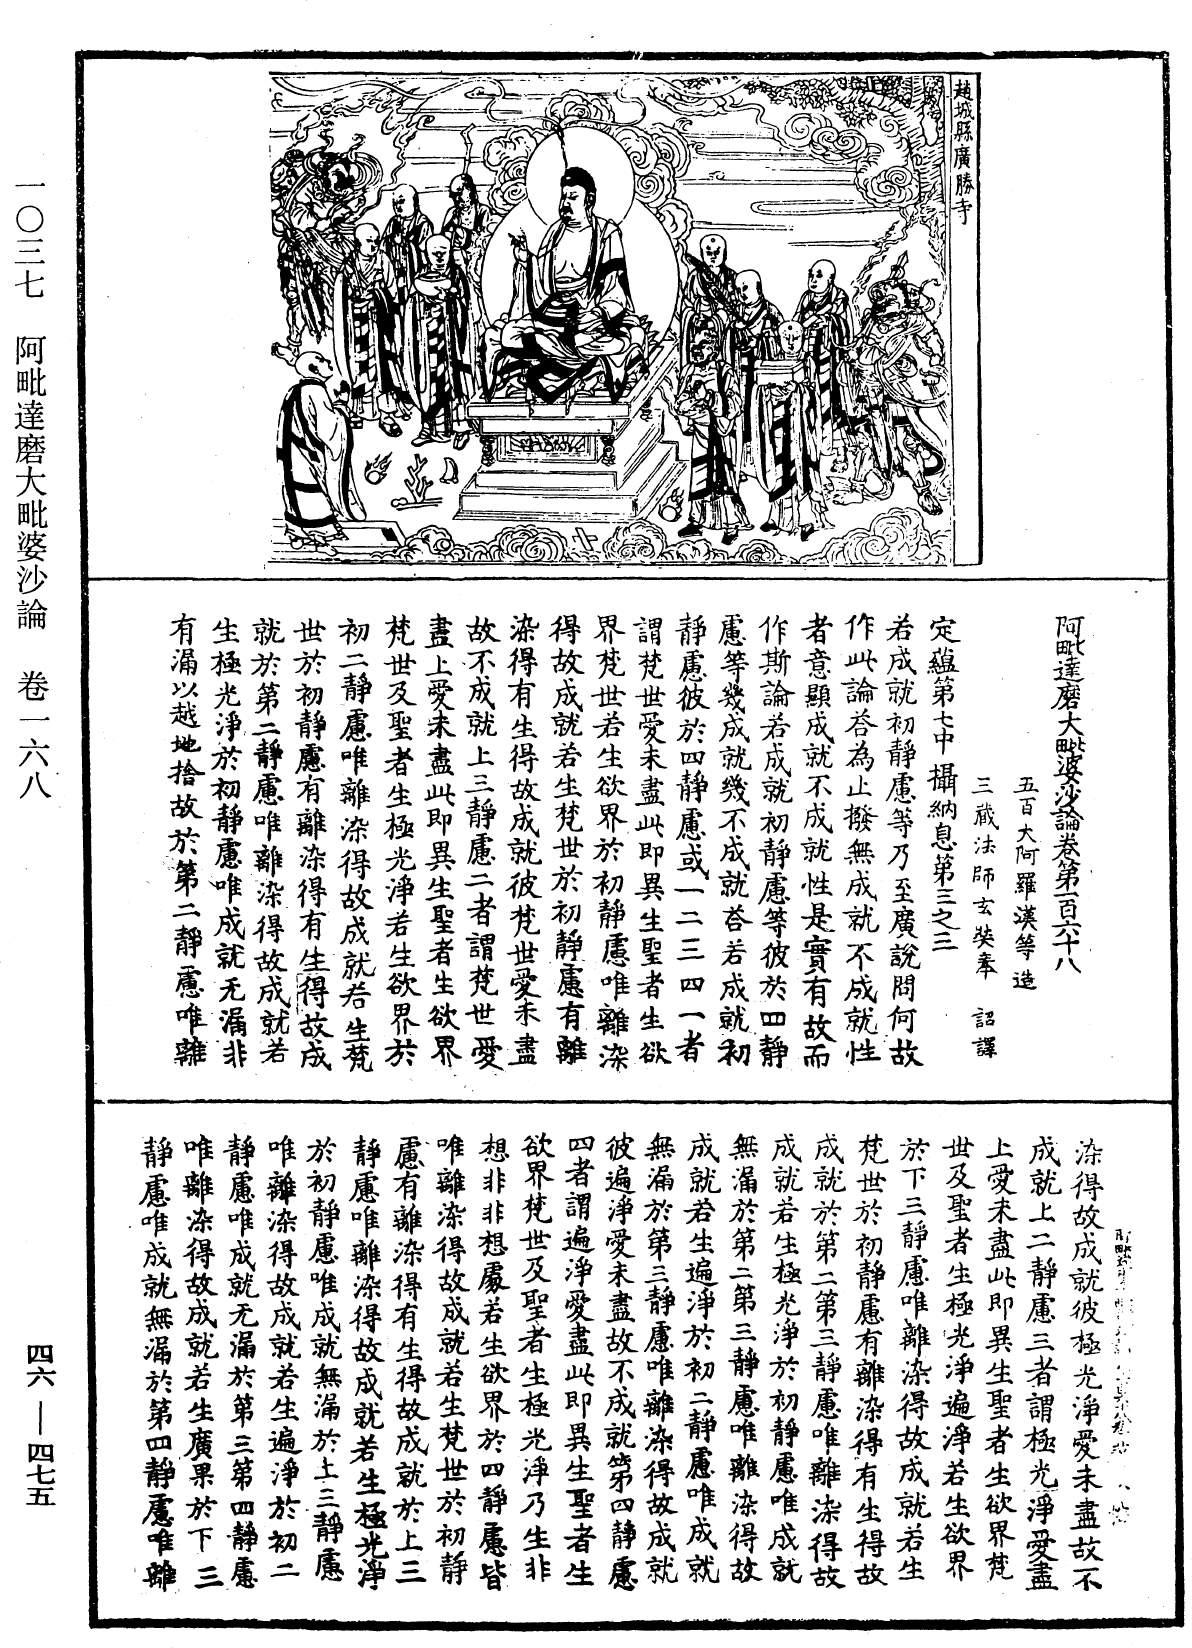 趙城縣廣勝寺
阿毗達磨大毗婆沙論卷第一百六十八
五百大阿羅漢等造
三藏法師玄奘奉 詔譯
定蘊第七中攝納息第三之三
若成就初靜慮等乃至廣說問何故
作此論荅為止撥無成就不成就性
者意顯成就不成就性是實有故而
作斯論若成就初靜慮等彼於四靜
慮等幾成就幾不成就荅若成就初
靜慮彼於四靜慮或一二三四一者
謂梵世愛未盡此即異生聖者生欲
界梵世若生欲界於初靜慮唯離染
得故成就若生梵世於初靜慮有離
染得有生得故成就彼梵世愛未盡
故不成就上三靜慮二者謂梵世愛
盡上愛未盡此即異生聖者生欲界
梵世及聖者生極光淨若生欲界於
初二靜慮唯離染得故成就若生梵
世於初靜慮有離染得有生得故成
就於第二靜慮唯離染得故成就若
生極光淨於初靜慮唯成就无漏非
有漏以越地捨故於第二靜慮唯離
染得故成就彼極光淨愛未盡故不
成就上二靜慮三者謂極光淨愛盡
上愛未盡此即異生聖者生欲界梵
世及聖者生極光淨遍淨若生欲界
於下三靜慮唯離染得故成就若生
梵世於初靜慮有離染得有生得故
成就於第二第三靜慮唯離染得故
成就若生極光淨於初靜慮唯成就
無漏於第二第三靜慮唯離染得故
成就若生遍淨於初二靜慮唯成就
無漏於第三靜慮唯離染得故成就
彼遍淨愛未盡故不成就第四靜慮
四者謂遍淨愛盡此即異生聖者生
欲界梵世及聖者生極光淨乃生非
想非非想處若生欲界於四靜慮皆
唯離染得故成就若生梵世於初靜
慮有離染得有生得故成就於上三
靜慮唯離染得故成就若生極光淨
於初靜慮唯成就無漏於上三靜慮
唯離染得故成就若生遍淨於初二
靜慮唯成就无漏於第三第四靜慮
唯離染得故成就若生廣果於下三
靜慮唯成就無漏於第四靜慮唯離
一〇三七 阿毗達磨大毗婆沙論 卷一六八
四六—四七五